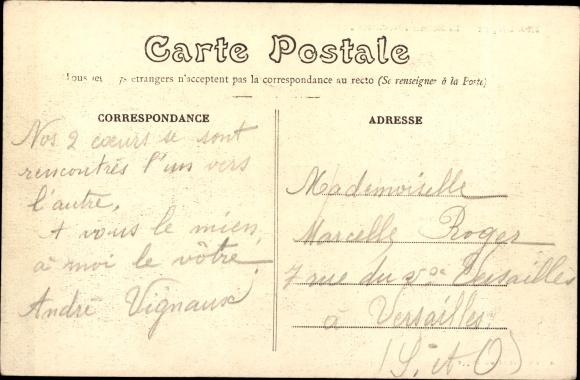 Carte Postale
étrangers n'acceptent pas la correspondance au recto (Se renseigner à la Poste)
CORRESPONDANCE
Nos 2 cœurs se sont
rencontrés l'un vers
l'autre,
A vous le mien,
à moi le vôtre.
André Vignaux
ADRESSE
Mademoiselle
Marcelle Roger
7 rue du Versailles
à Versailles
(S. et O)